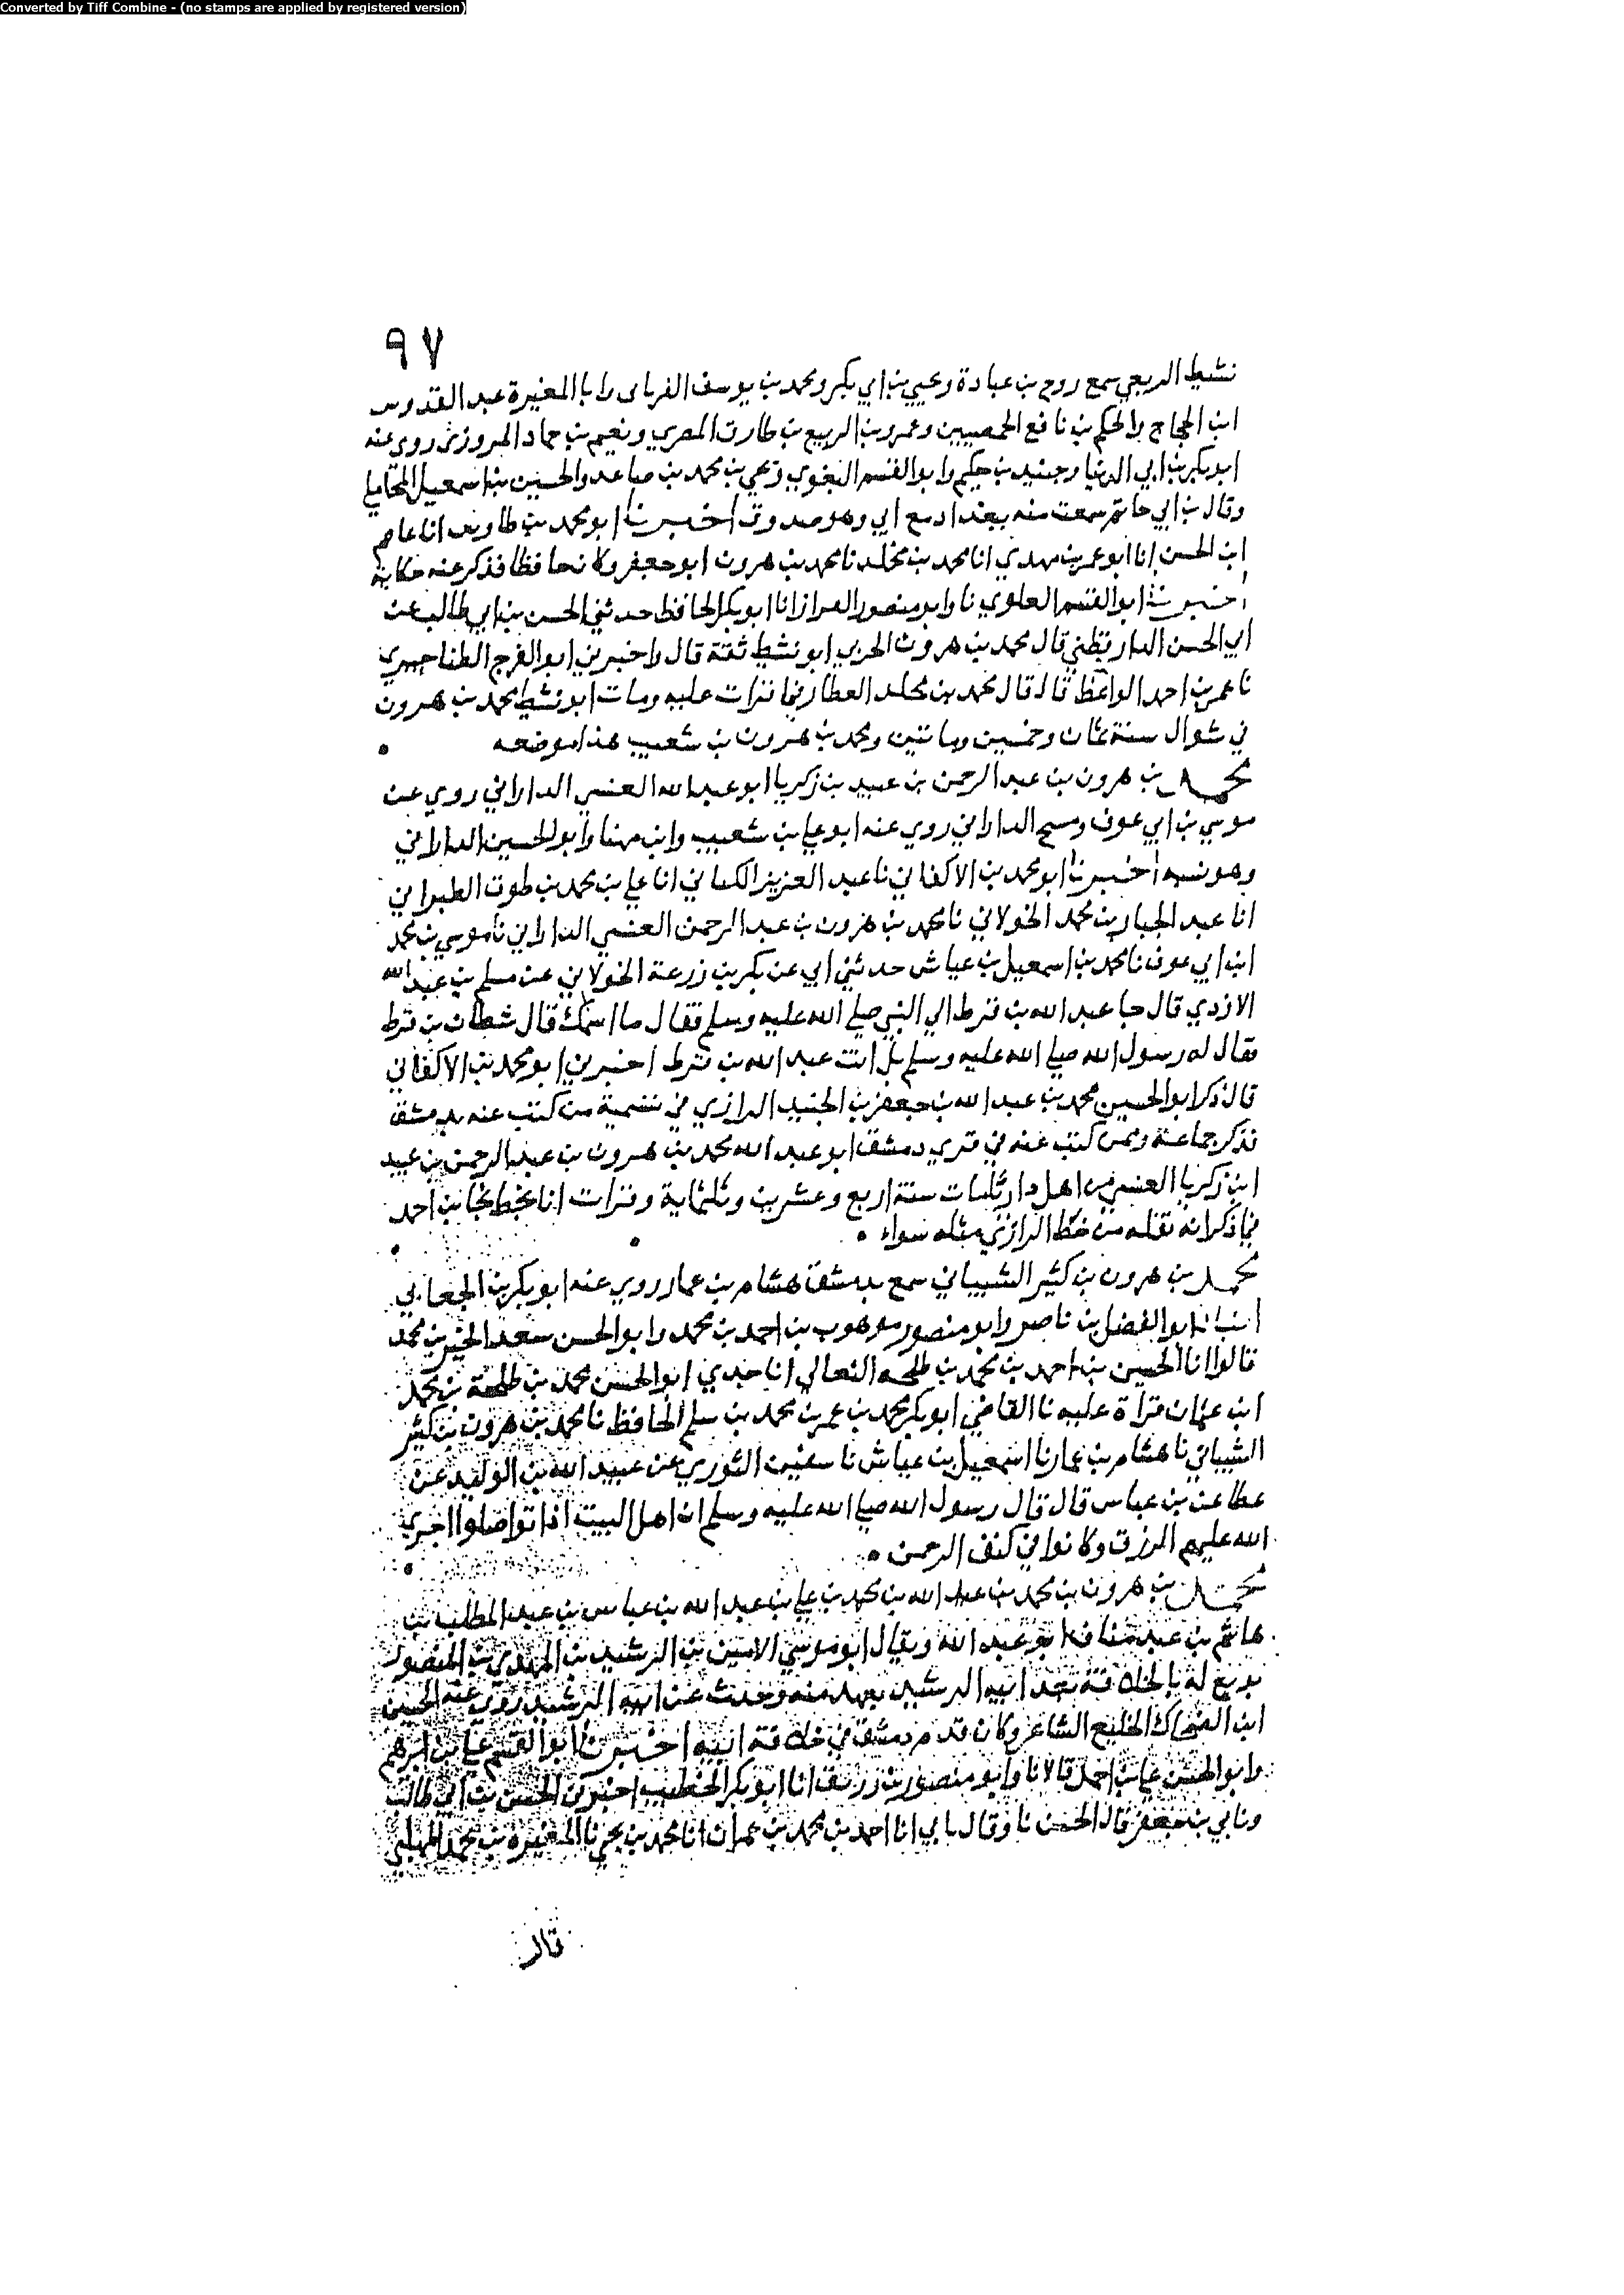 Converted by Tiff Combine - (no stamps are applied by registered version)
٩٧
نشيط الربعي سمع روح بن عبادة ويحيي بن ابي بكير ومحمد بن يوسف الفريابي وابا المغيرة عبد القدوس
ابن الحجاج والحكم بن نافع الحمصيين وعمرو بن الربيع بن طارق المصري ونعيم بن حماد المروزي روي عنه
ابو بكر بن ابي الدنيا وجنيد بن حكيم وابو القسم البغوي ويحيي بن محمد بن صاعد والحسين بن اسمعيل المحاملي
وقال بن ابي حاتم سمعت منه ببغداد مع ابي وهو صدوق اخبرنا ابو محمد بن طاوس انا عاصم
ابن الحسن انا ابو عمر بن مهدي انا محمد بن مخلد نا محمد بن هرون ابو جعفر وكان حافظا فذكر عنه حكاية
اخبرنا ابو القسم العلوي نا وابو منصور القزاز انا ابو بكر الحافظ حدثني الحسن بن ابي طالب عن
ابي الحسن الدارقطني قال محمد بن هرون الحربي ابو نشيط ثقة قال واخبرني ابو الفرج الطناجيري
نا عمر بن احمد الواعظ قال قال محمد بن مخلد العطار فيما قرات عليه ومات ابو نشيط محمد بن هرون
في شوال سنة ثمان وخمسين وماتين ومحمد بن هرون بن شعيب هذا موضعه
محمد بن هرون بن عبد الرحمن بن عبيد بن زكريا ابو عبد الله العنسي الداراني روي عن
موسي بن ابي عوف ومسبح الداراني روي عنه ابو علي بن شعيب وابن مهنا وابو الحسين الداراني
وهو نسبه اخبرنا ابو محمد بن الاكفاني نا عبد العزيز الكتاني انا علي بن محمد بن طوق الطبراني
انا عبد الجبار بن محمد الخولاني نا محمد بن هرون بن عبد الرحمن العنسي الداراني نا موسي بن محمد
ابن ابي عوف نا محمد بن اسمعيل بن عياش حدثني ابي عن بكر بن زرعة الخولاني عن مسلم بن عبد الله
الازدي قال جا عبد الله بن قرط الي النبي صلي الله عليه وسلم فقال ما اسمك قال شيطان بن قرط
فقال له رسول الله صلي الله عليه وسلم بل انت عبد الله بن قرط اخبرني ابو محمد بن الاكفاني
قال ذكر ابو الحسين محمد بن عبد الله بن جعفر بن الجنيد الرازي في تسمية من كتب عنه بدمشق
فذكر جماعة وممن كتب عنه في قري دمشق ابو عبد الله محمد بن هرون بن عبد الرحمن بن عبيد
ابن زكريا العنسي من اهل داريا مات سنة اربع وعشرين وثلثماية وقرات انا بخط نجا بن احمد
فيما ذكر انه نقله من خط الرازي مثله سواء
محمد بن هرون بن كثير الشيباني سمع بدمشق هشام بن عمار روي عنه ابو بكر بن الجعابي
انبانا ابو الفضل بن ناصر وابو منصور موهوب بن احمد بن محمد وابو الحسن سعد الخير بن محمد
قالوا انا الحسين بن احمد بن محمد بن طلحه النعالي انا جدي ابو الحسن محمد بن طلحة بن محمد
ابن عثمان قراة عليه نا القاضي ابو بكر محمد بن عمر بن محمد بن سلم الحافظ نا محمد بن هرون بن كثير
الشيباني نا هشام بن عمار نا اسمعيل بن عياش نا سفين الثوري عن عبيد الله بن الوليد عن
عطا عن بن عباس قال قال رسول الله صلي الله عليه وسلم ان اهل البيت اذا تواصلوا اجري
الله عليهم الرزق وكانوا في كنف الرحمن
محمد بن هرون بن محمد بن عبد الله بن محمد بن علي بن عبد الله بن عباس بن عبد المطلب بن
هاشم بن عبد مناف ابو عبد الله ويقال ابو موسي الامين بن الرشيد بن المهدي بن المنصور
بويع له بالخلافة بعد ابيه الرشيد بعهد منه وحدث عن ابيه الرشيد روي عنه الحسين
ابن الضحاك الخليع الشاعر وكان قدم دمشق في خلافة ابيه اخبرنا ابو القسم علي بن ابرهيم
وابو الحسن علي بن احمد قالا نا وابو منصور بن زريق انا ابو بكر الخطيب اخبرني الحسن بن ابي طالب
وباي بن جعفر قال الحسن نا وقال باي انا احمد بن محمد بن عمران انا محمد بن يحيي نا المغيرة بن محمد المهلبي
قال